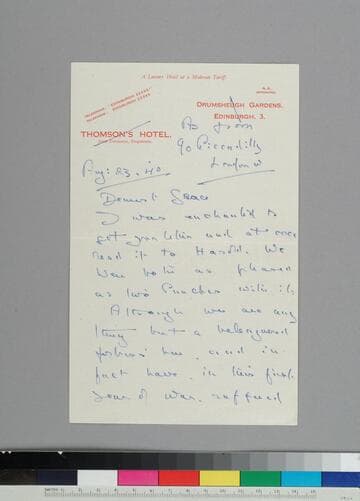 A Luxury Hotel at a Moderate Tariff.
DRUMSHEUGH GARDENS,
EDINBURGH, 3.
THOMSON'S HOTEL,
As from
90 Piccadilly
London W
Aug: 23. '40
Dearest Grace
I was enchanted to
get your letter and at once
read it to Harold. We
were both as pleased
as two Punches with it.
Although we are any
thing but a beleaguered
fortress here, and in
fact have, in this first
year of war, suffered